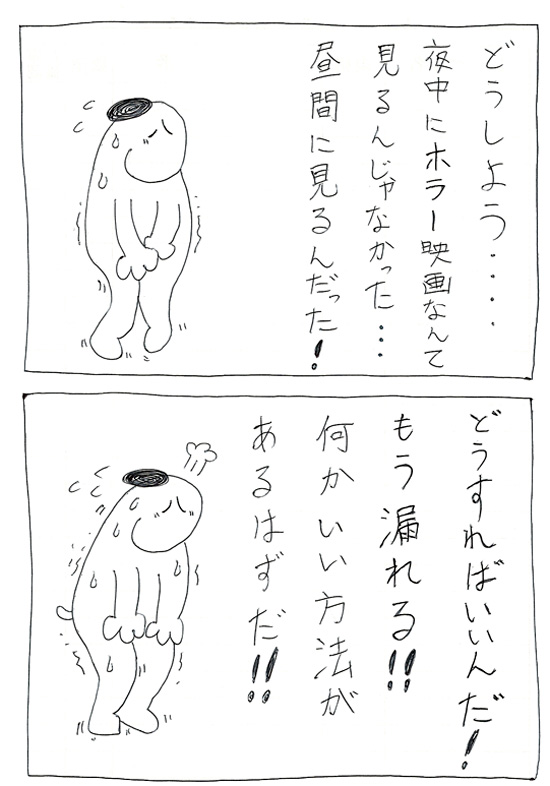 どうしよう‥‥
夜中にホラー映画なんて
見るんじゃなかった…
昼間に見るんだった!
どうすればいいんだ!
もう漏れる!!
何かいい方法が
あるはずだ!!